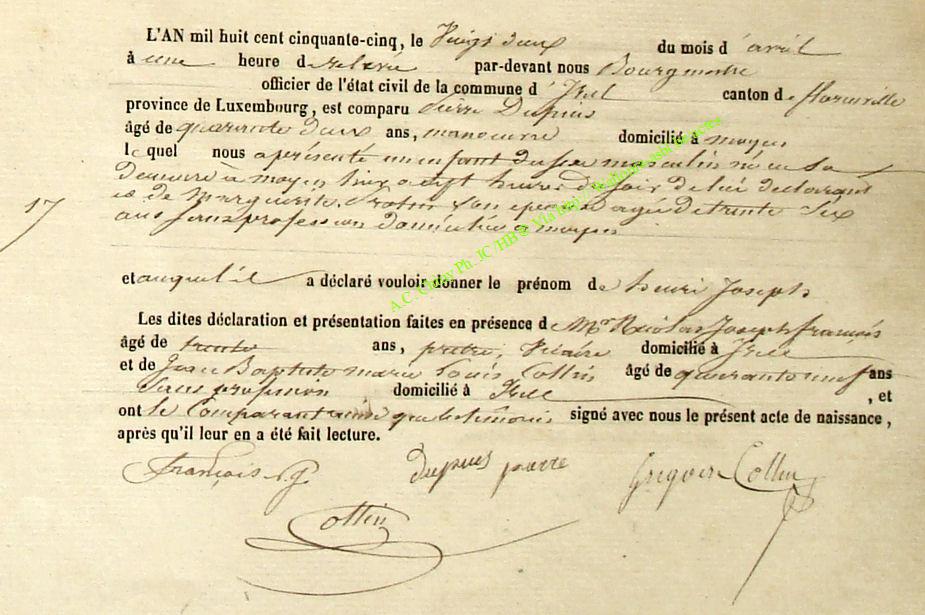 L'AN mil huit cent cinquante-cinq, le Vingt deux du mois d'avril
à une heure de relevée par-devant nous Bourgmestre
officier de l'état civil de la commune d'Izel canton de florenville
province de Luxembourg, est comparu Pierre Dupuis
âgé de quarante deux ans, manoeuvre domicilié à moyen
lequel nous a présenté un enfant du sexe masculin né en sa
demeure à moyen hier a sept heures du soir de lui declarant
et de Marguerite son epouse agée de trente six
ans sans profession domiciliée a moyen
17
et auquel il a déclaré vouloir donner le prénom de henri Joseph
Les dites déclaration et présentation faites en présence de Mr Nicolas Joseph françois
âgé de trente ans, pretre, Vicaire domicilié à Izel
et de Jean Baptiste marie Louis Collin âgé de quarante neuf ans
sans profession domicilié à Izel, et
ont le Comparant ainsi que les temoins signé avec nous le présent acte de naissance,
après qu'il leur en a été fait lecture.
François N.J. dupuis pierre Grégoire Collin
Collin
A.C. Chiny Ph. JC/HB & Via http://